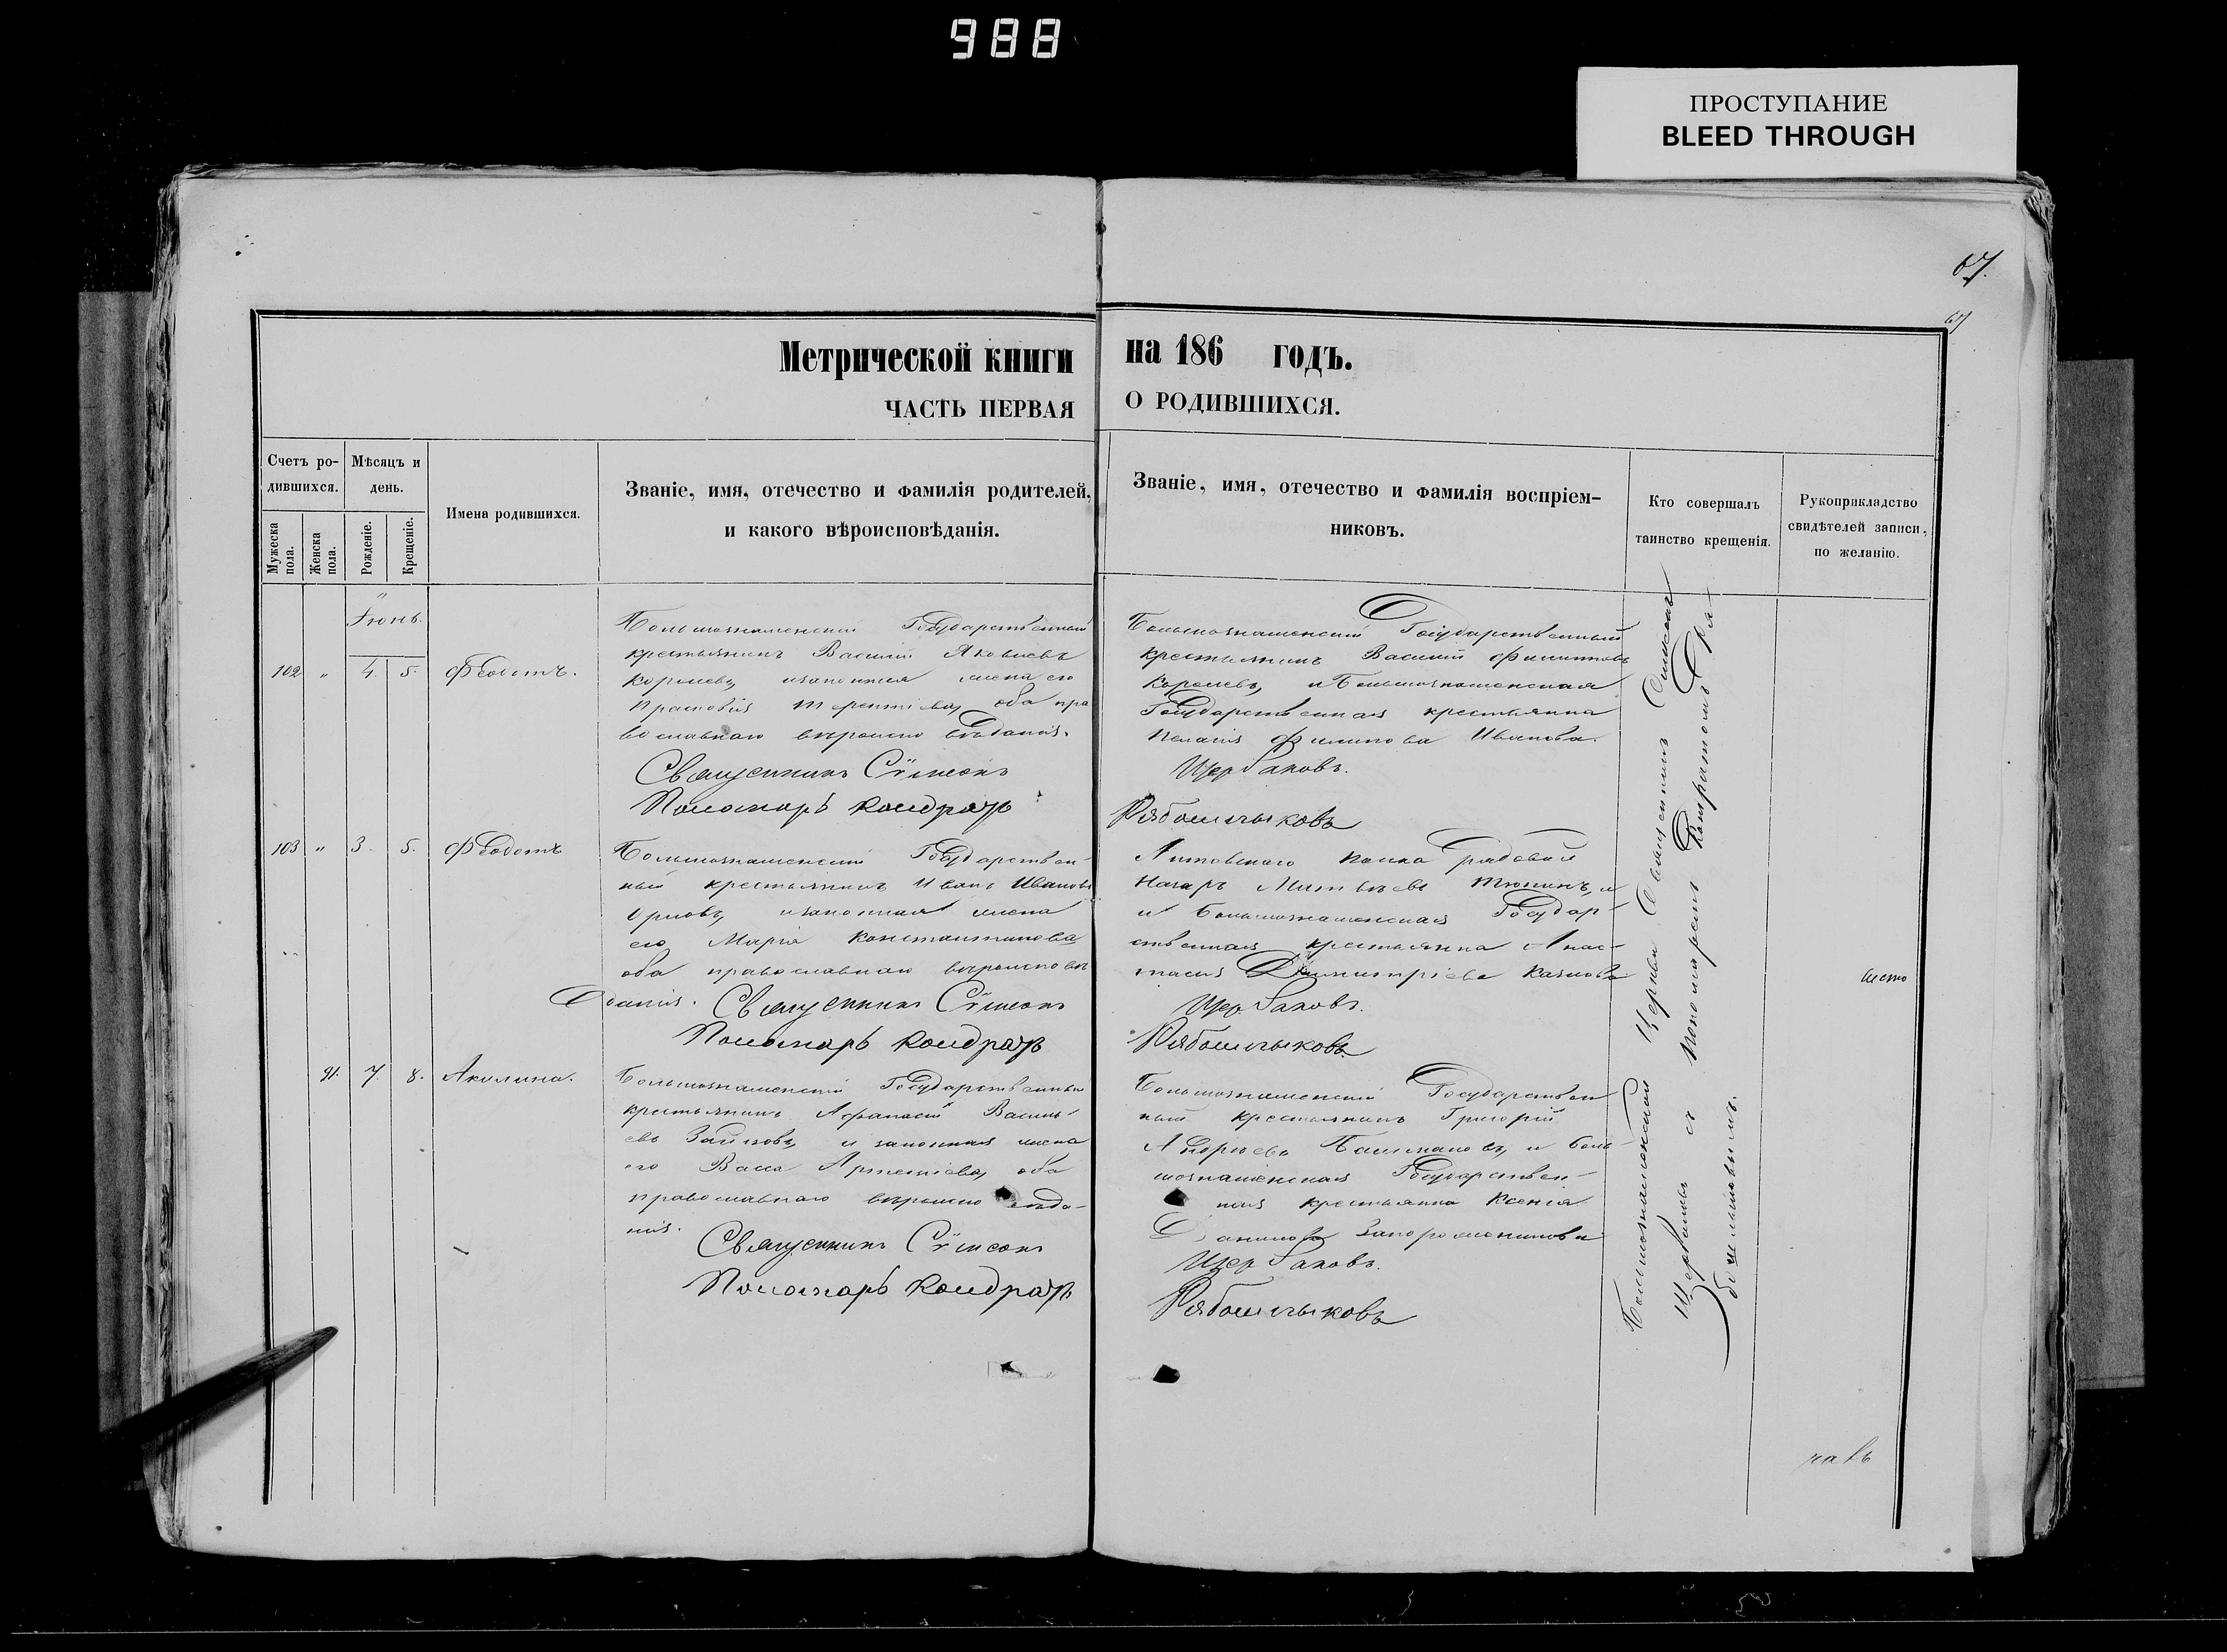 988
ПРОСТУПАНИЕ
BLEED THROUGH
67.
67
Метрической книги на 186 годъ.
ЧАСТЬ ПЕРВАЯ О РОДИВШИХСЯ.
Счетъ ро-
дившихся.
Мужеска
пола.
Женска
пола.
Мѣсяцъ и
день.
Рожденіе.
Крещеніе.
Имена родившихся.
Званіе, имя, отечество и фамилія родителей,
и какого вѣроисповѣданія.
Званіе, имя, отечество и фамилія воспріем-
никовъ.
Кто совершалъ
таинство крещенія.
Рукоприкладство
свидѣтелей записи,
по желанію.
Іюнь.
102 " 4. 5. Ѳеодотъ.
Большознаменскій Государственный
крестьянинъ Василій Яковлевъ
Королевъ, и законная жена его
Прасковія Терентіева, оба пра
вославнаго вѣроисповѣданія.
Священникъ Сѵмеонъ
Пономарь Кондратъ
Большознаменскій Государственный
крестьянинъ Василій Филиповъ
Королевъ, и Большознаменская
Государственная крестьянка
Пелагія Филипова Иванова.
Щербаковъ.
Рябошлыковъ
103 " 3. 5. Ѳеодотъ
Большознаменскій Государствен-
ный крестьянинъ Иванъ Ивановъ
Орловъ, и законная жена
его Марія Константинова
оба православнаго вѣроисповѣ
данія. Священникъ Сѵмеонъ
Пономарь Кондратъ
Литовскаго полка рядовой
Назаръ Матвѣевъ Тюнинъ, и
и Большознаменская Государ-
ственная крестьянка Анас-
тасія Димитріева
Щербаковъ.
Рябошлыковъ
91. 7. 8. Акилина.
Большознаменскій Государственный
крестьянинъ Афанасій Василь
евъ Зайковъ, и законная жена
его Васса Артеміева, оба
православнаго вѣроисповѣда-
нія.
Священникъ Сѵмеонъ
Пономарь Кондратъ
Большознаменскій Государствен
ный крестьянинъ Григорій
Андреевъ и боль
шознаменская Государствен-
ная крестьянка Ксенія
Данилова
Щербаковъ.
Рябошлыковъ
Большознаменской Церкви Священникъ Симеонъ
Щербаковъ съ пономаремъ Кондратомъ Ря-
бошлыковымъ.